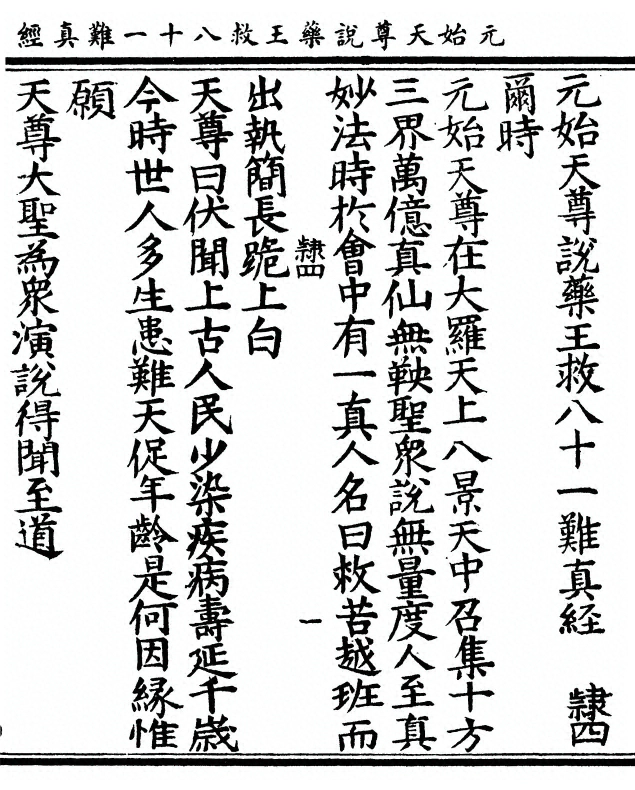 元始天尊說藥王救八十一難真經
元始天尊說藥王救八十一難真経 隷四
爾時
元始天尊在大羅天上八景天中召集十方
三界萬億真仙無鞅聖衆說無量度人至真
妙法時於會中有一真人名曰救苦越班而
隷四 一
出執簡長跪上白
天尊曰伏聞上古人民少染疾病壽延千歲
今時世人多生患難天促年齡是何因緣惟
願
天尊大聖為衆演說得聞至道